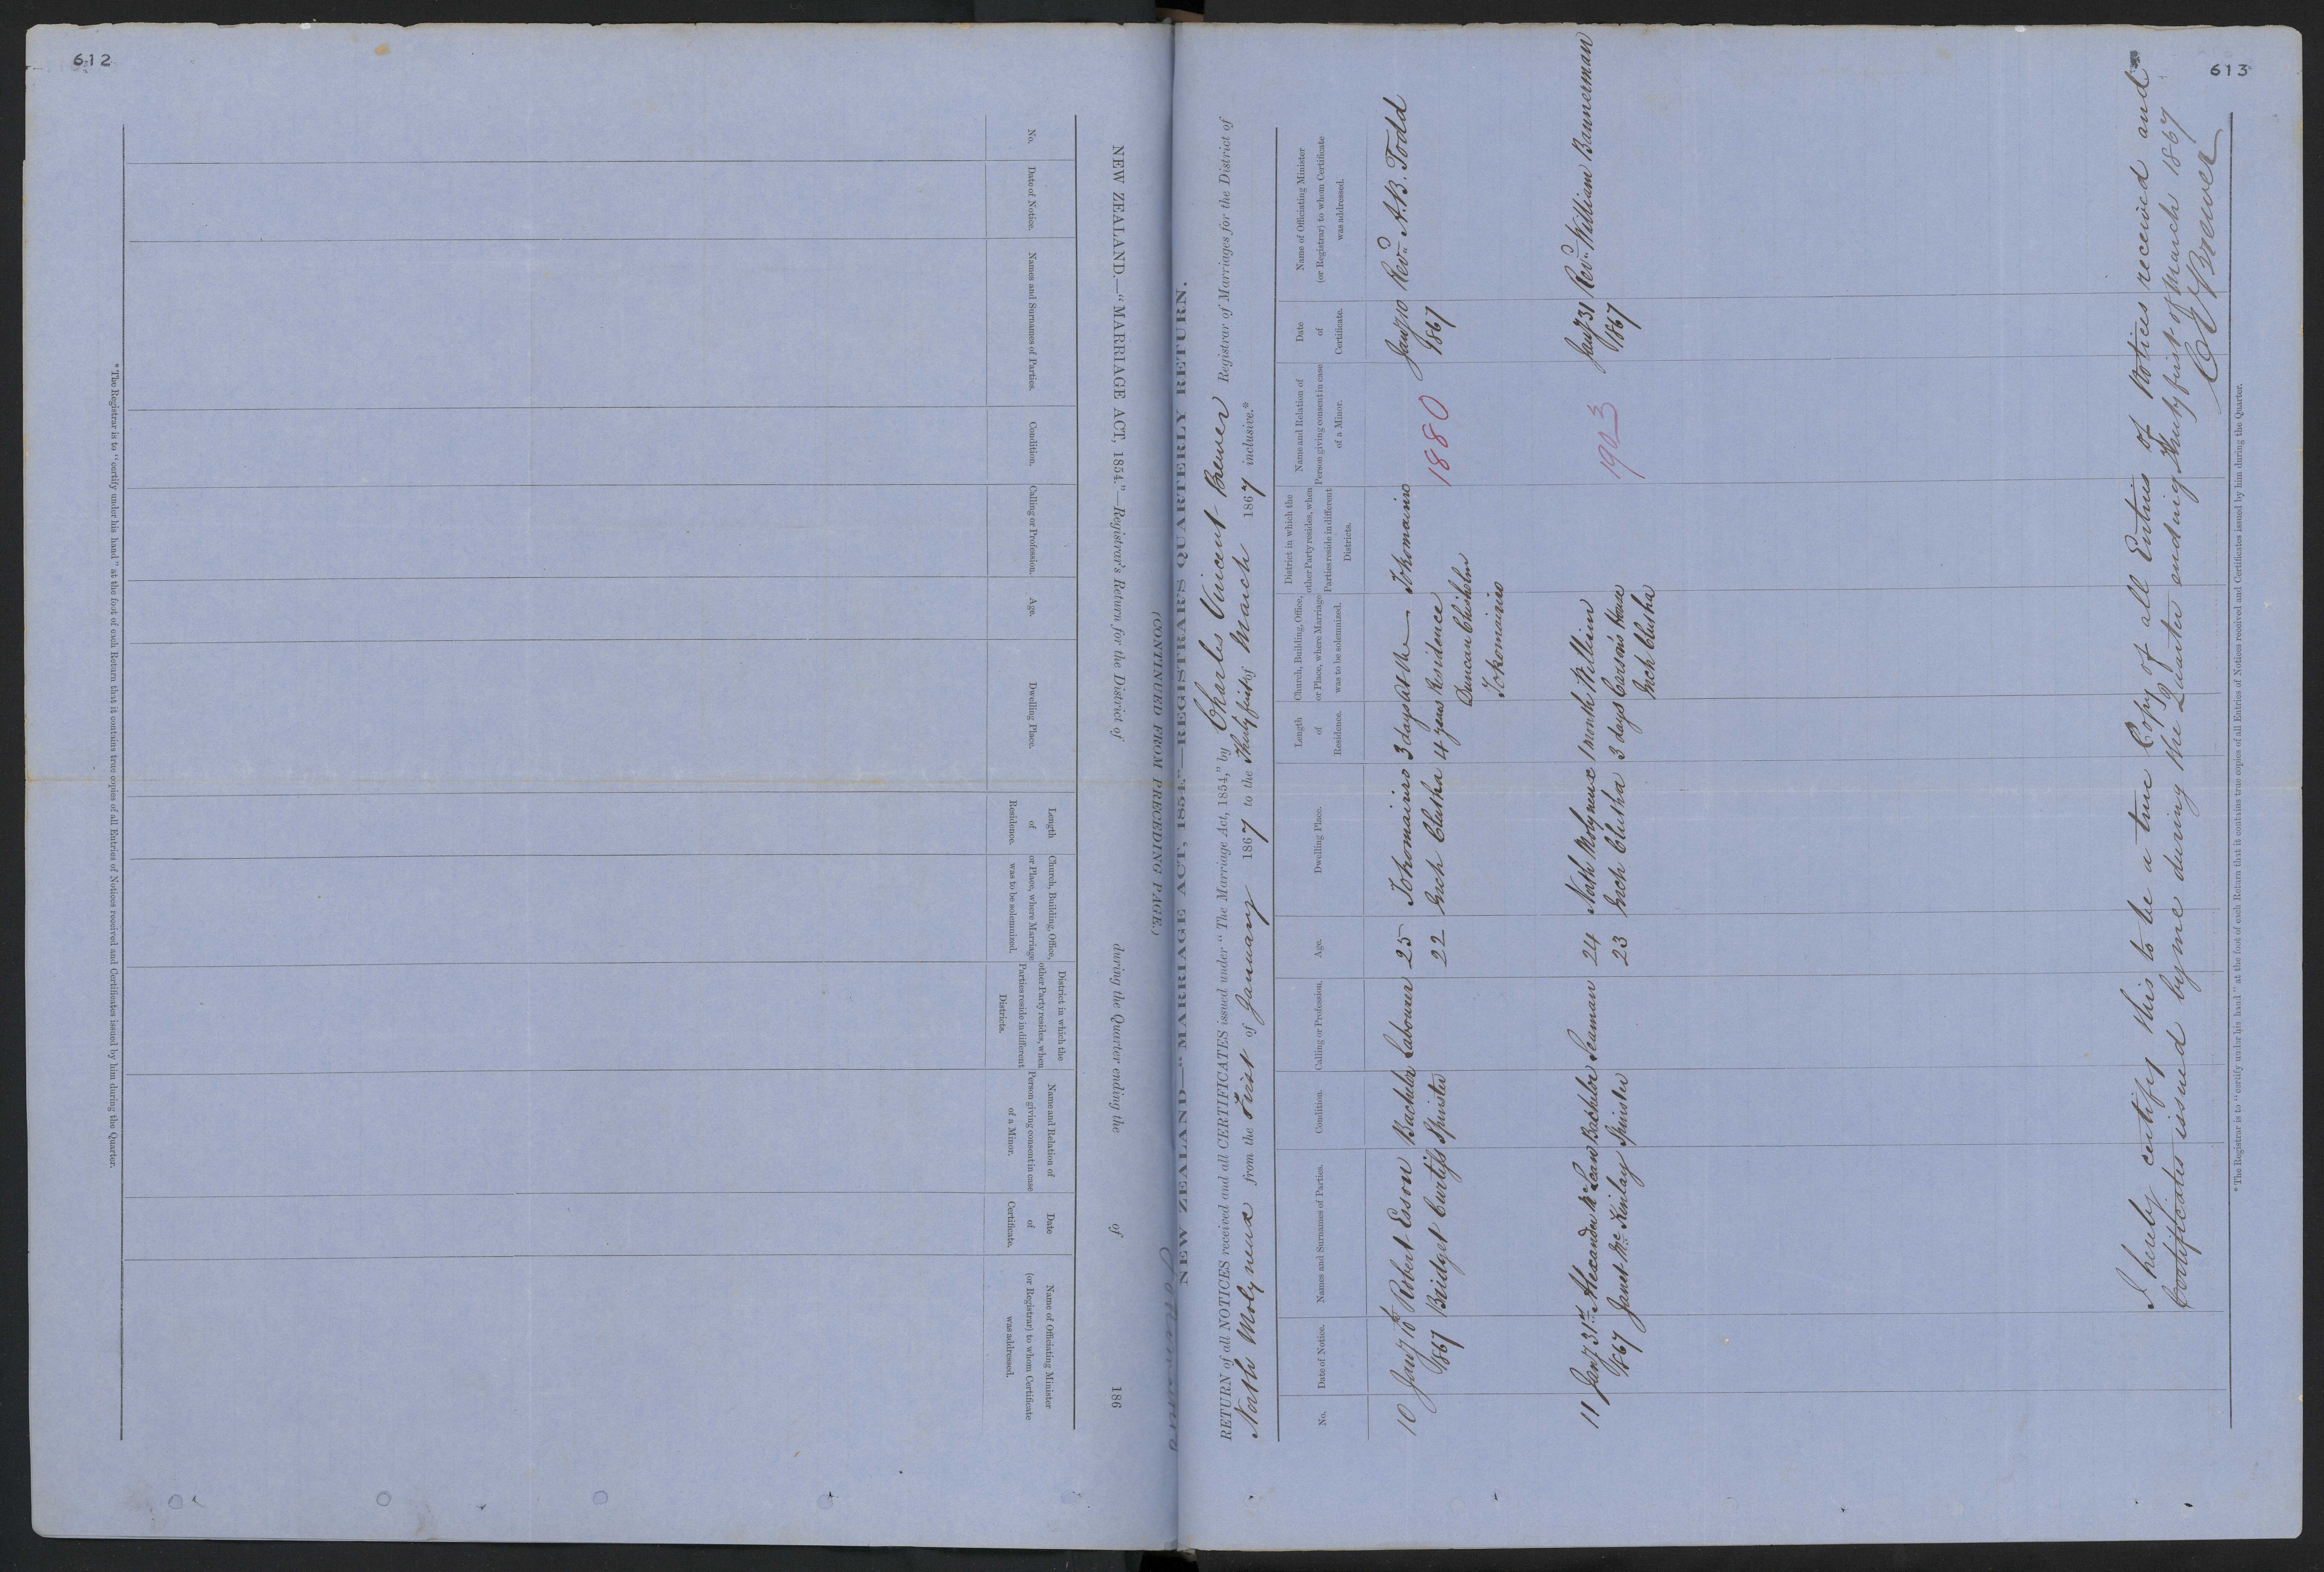 612
NEW ZEALAND.—"MARRIAGE ACT, 1854."—Registrar's Return for the District of during the Quarter ending the of 186
No.
Date of Notice.
Names and Surnames of Parties.
Condition.
Calling or Profession.
Age.
Dwelling Place.
Length
of
Residence.
Church, Building, Office,
or Place, where Marriage
was to be solemnized.
District in which the
other Party resides, when
Parties reside in different
Districts.
Name and Relation of
Person giving consent in case
of a Minor.
Date
of
Certificate.
Name of Officiating Minister
(or Registrar) to whom Certificate
was addressed.
* The Registrar is to "certify under his hand" at the foot of each Return that it contains true copies of all Entries of Notices received and Certificates issued by him during the Quarter.
613
(CONTINUED FROM PRECEDING PAGE.)
NEW ZEALAND—"MARRIAGE ACT, 1854."—REGISTRAR'S QUARTERLY RETURN.
RETURN of all NOTICES received and all CERTIFICATES issued under "The Marriage Act, 1854," by Charles Vincent Brewer Registrar of Marriages for the District of
North Molyneux from the First of January 1867 to the Thirty first of March 1867 inclusive.*
No.
Date of Notice.
Names and Surnames of Parties.
Condition.
Calling or Profession.
Age.
Dwelling Place.
Length
of
Residence.
Church, Building, Office,
or Place, where Marriage
was to be solemnized.
District in which the
other Party resides, when
Parties reside in different
Districts.
Name and Relation of
Person giving consent in case
of a Minor.
Date
of
Certificate.
Name of Officiating Minister
(or Registrar) to whom Certificate
was addressed.
10 Jany 10 Robert Esson Bachelor Labourer 25 Tokomairiro 3 days at the Tokomairiro Jany 10 Revd. A.B. Todd
1867 Bridget Curtiss Spinster 22 Inch Clutha 4 years Residence 1880 1867
Duncan Chisholm
Tokomairiro
11 Jany 31st Alexander McLean Bachelor Seaman 24 North Molyneux 1 month William Jany 31 Revd. William Bannerman
1867 Janet McKinlay Spinster 23 Inch Clutha 3 days Carson's house 1903 1867
Inch Clutha
I hereby certify this to be a true Copy of all Entries of Notices received and
Certificates issued by me during the Quarter ending Thirty first of March 1867
C V Brewer
* The Registrar is to "certify under his hand" at the foot of each Return that it contains true copies of all Entries of Notices received and Certificates issued by him during the Quarter.